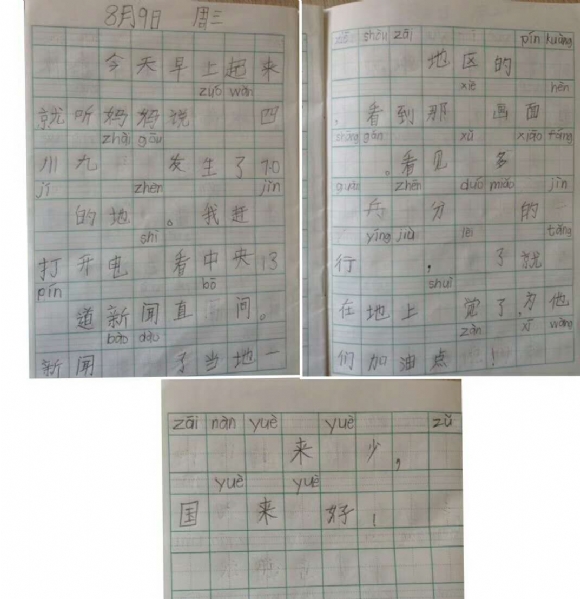 8月9日 周三
今天早上起来
zuó wǎn
就听妈妈说 四
zhài gōu
川九 发生了7.0
jí zhèn jǐn
的地 。我赶
shì
打开电 看中央13
pín bō
道新闻直 间。
bào dào
新闻 了当地一
shòu zāi pín
地区的
hěn
，看到那 画面
shāng gǎn xǔ xiāo fáng
。看见 多
zhēn duó miǎo jìn
兵 分 的
yíng jiù lèi tǎng
行 ， 了就
shuì
在地上 觉了,为他
zàn xī wàng
们加油点 !
zāi nàn yuè yuè zǔ
来 少，
yuè yuè
国 来 好！